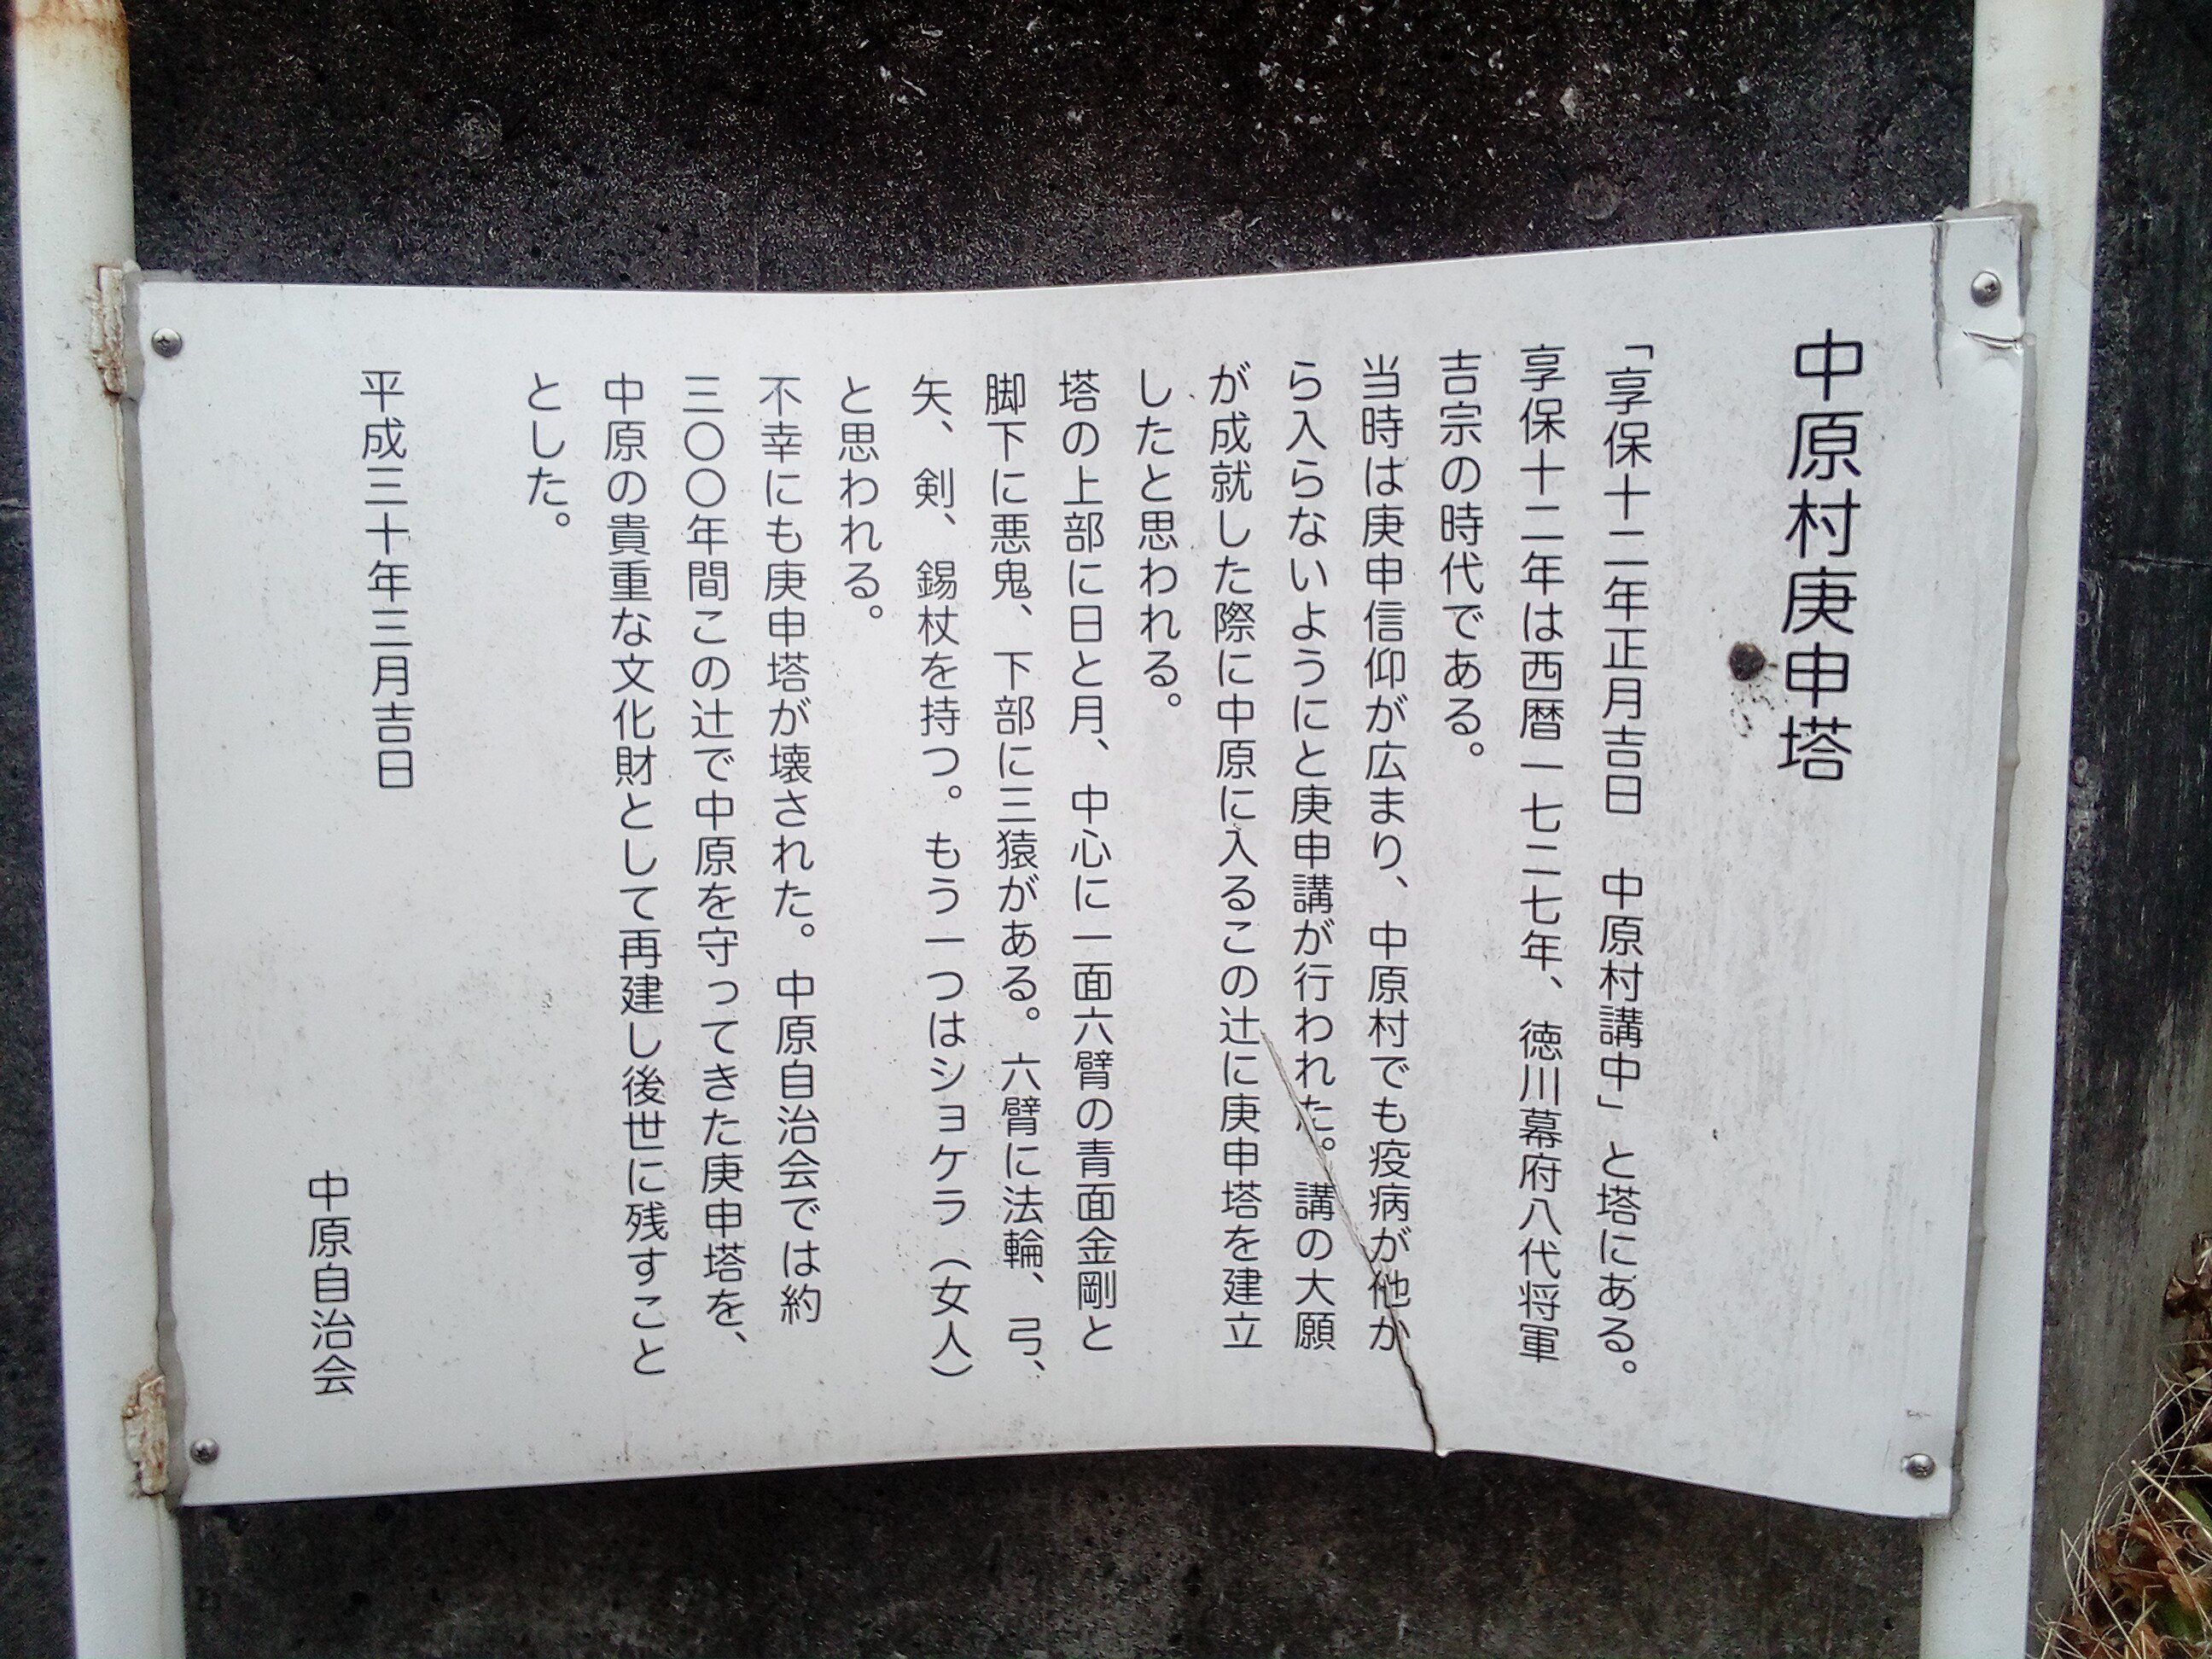 中原村庚申塔
「享保十二年正月吉日　中原村講中」と塔にある。
享保十二年は西暦一七二七年、徳川幕府八代将軍
吉宗の時代である。
当時は庚申信仰が広まり、中原村でも疫病が他か
ら入らないようにと庚申講が行われた。講の大願
が成就した際に中原に入るこの辻に庚申塔を建立
したと思われる。
塔の上部に日と月、中心に一面六臂の青面金剛と
脚下に悪鬼、下部に三猿がある。六臂に法輪、弓、
矢、剣、錫杖を持つ。もう一つはショケラ（女人）
と思われる。
不幸にも庚申塔が壊された。中原自治会では約
三〇〇年間この辻で中原を守ってきた庚申塔を、
中原の貴重な文化財として再建し後世に残すこと
とした。
平成三十年三月吉日
中原自治会